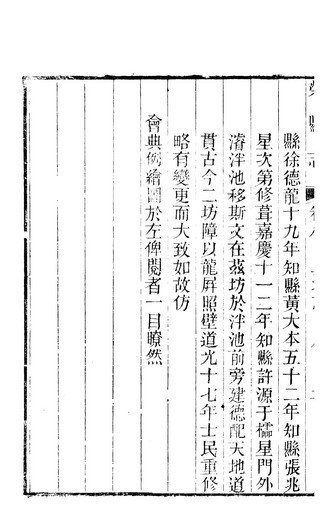 縣徐德龍十九年知縣黃大本五十二年知縣張兆
星次第修葺嘉慶十一二年知縣許源于櫺星門外
濬泮池移斯文在茲坊於泮池前旁建德配天地道
貫古今二坊障以龍屛照壁道光十七年士民重修
略有變更而大致如故仿
會典例繪圖於左俾閱者一目瞭然